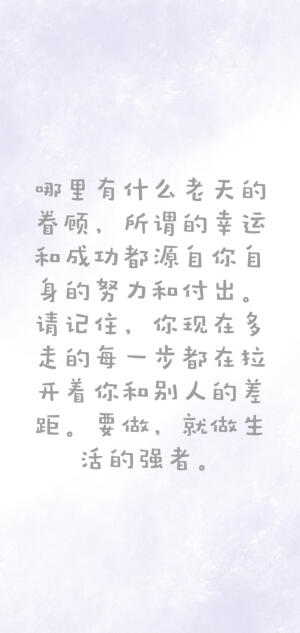 哪里有什么老天的
眷顾，所谓的幸运
和成功都源自你自
身的努力和付出。
请记住，你现在多
走的每一步都在拉
开着你和别人的差
距。要做，就做生
活的强者。